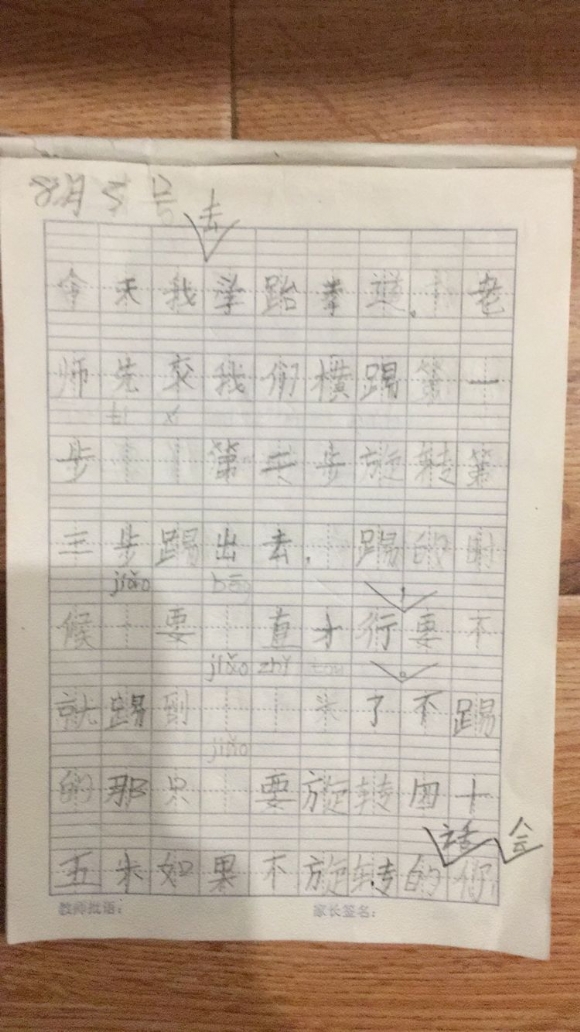 8月5号
去
今天我学跆拳道。老
师先交我们横踢第一
ti x
步 第二步旋转第
三步踢出去。踢的时
jiǎo bēng
候 要 直才行要不
jiǎo zhǐ
就踢到 米了不踢
jiǎo
的那只 要旋转四十
话 会
五米如果不旋转的你
教师批语: 家长签名: